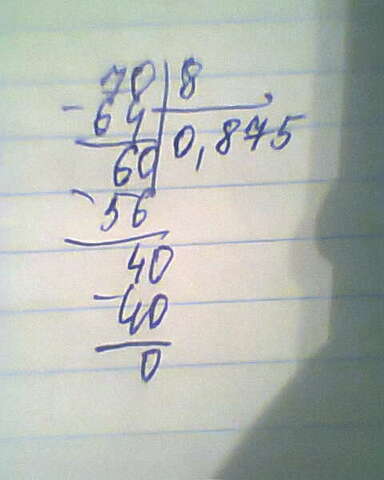 70 8
- 64
60 0,875
- 56
40
- 40
0